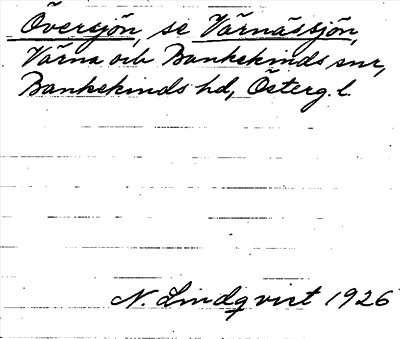 Översjön, se Värnässjön,
Värna och Bankekinds snr,
Bankekinds hd, Österg. l.
N. Lindqvist 1926